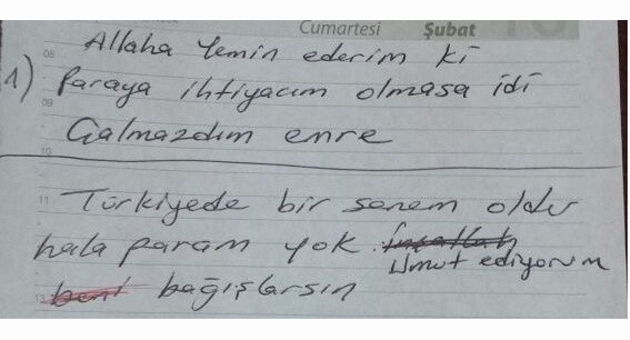 Cumartesi Şubat
08
Allaha Yemin ederim ki
1) Paraya ihtiyacım olmasa idi
09
Çalmazdım emre
10
11 Türkiyede bir senem oldu
hala param yok. İnşallah Umut ediyorum
13 beni bağışlarsın